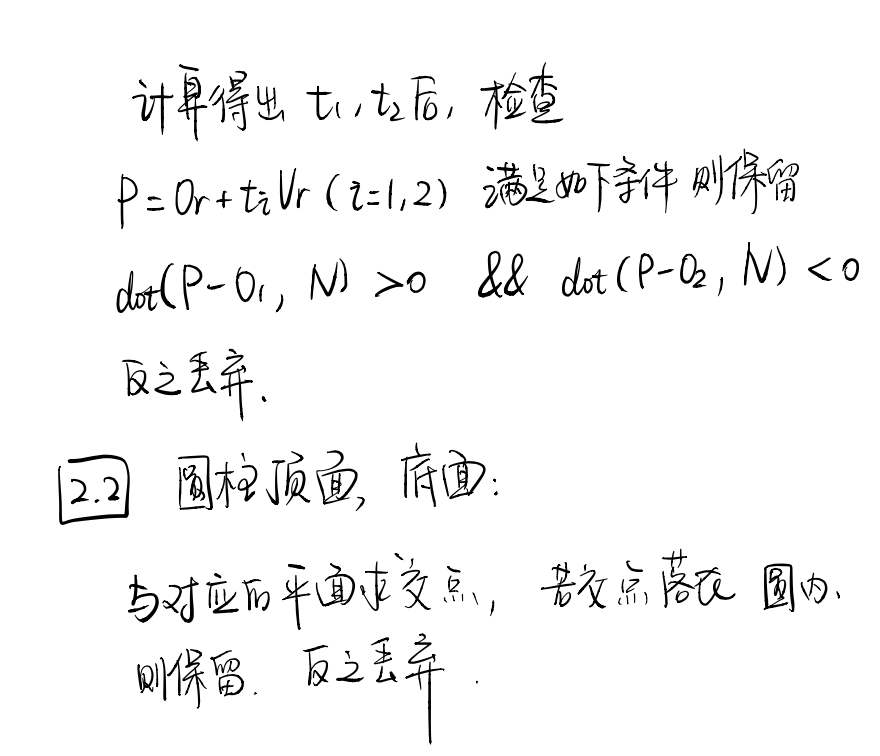 计算得出 t₁,t₂后, 检查
P=Or+tiVr (i=1,2) 满足如下条件 则保留
dot(P-O₁, N) >0 && dot(P-O₂, N) <0
反之丢弃.
2.2 圆柱顶面, 底面:
与对应的平面求交点, 若交点落在 圆内.
则保留. 反之丢弃.